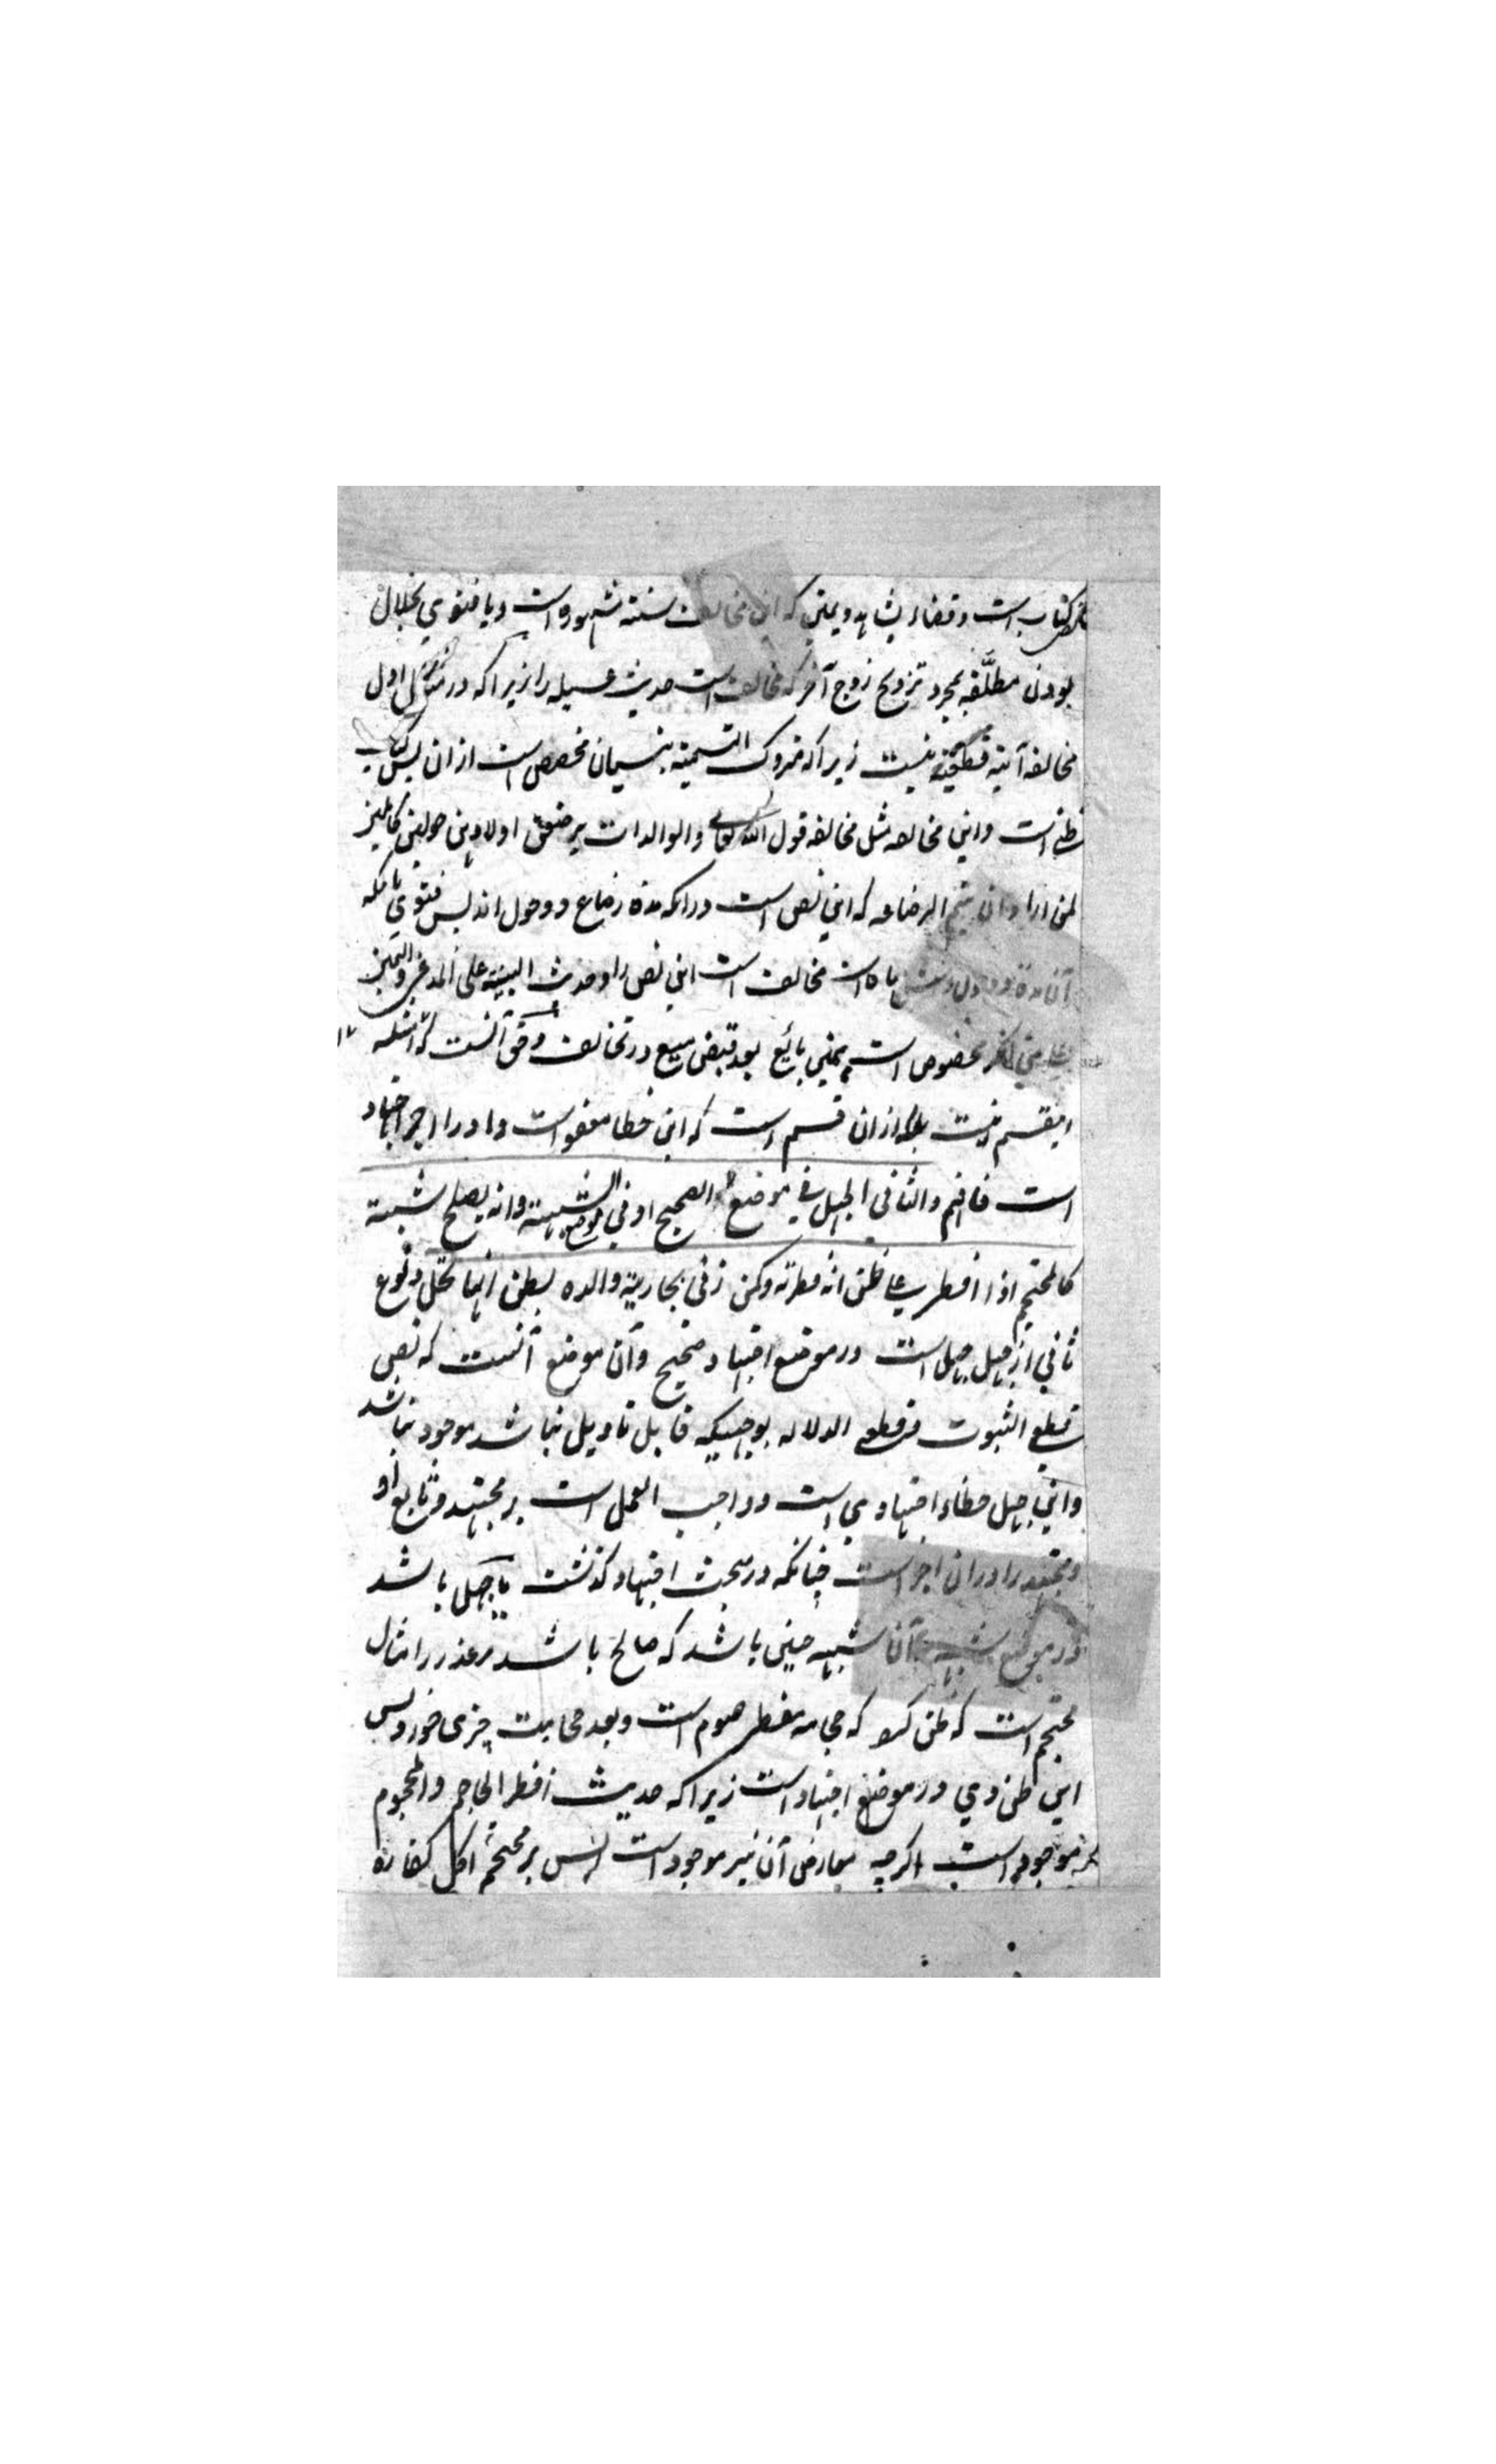 نص کتاب است و قضاء بشاهد و یمین که این مخالف سنته مشهوره است و یا فتوی بحلال
بودن مطلَّقه بمجرد تزویج زوج آخر که مخالف است حدیث عسیله را زیرا که در مثال اول
مخالفه آیته قطعیته نیست زیرا که متروک التسمیته بنسیان مخصص است ازان پس کتاب
ظنی است و این مخالفه مثل مخالفه قول الله تعالی والوالدات یرضعن اولادهن حولین کاملین
لمن اراد ان یتم الرضاعه که این نص است درانکه مده رضاع دو حول اند پس فتوی بانکه
آن مدة دو حول و شش ماه است مخالف است این نص را و حدیث البینه علی المدعی والیمین
علی من انکر مخصوص است بیمین بائع بعد قبض مبیع در تخالف و حق آنست که امثله ١٢
اینقسم نیست بلکه ازان قسم است که این خطا معفو است و او را اجر اجتهاد
است فافهم والثانی الجهل فی موضع الصحیح او فی موضع الشبهته وانه یصلح شبهته
کالمحتجم اذا افطر علی ظن انه فطرته وکمن زنی بجاریة والده بظن انها تحل و نوع
ثانی از جهل جهل است در موضع اجتهاد صحیح و آن موضع آنست که نص
قطعی الثبوت و قطعی الدلاله بوجهیکه قابل تاویل نباشد موجود نباشد
و این جهل خطاء اجتهادی است و واجب العمل است بر مجتهد و تابع او
و مجتهد را دران اجر است چنانکه در مبحث اجتهاد گذشت یا جهل باشد
در موضع شبهه و آن شبهه چنین باشد که صالح باشد مر عذر را مثال
محتجم است که ظن کرد که حجامه مفطر صوم است و بعد حجامت چیزی خورد پس
این ظن وی در موضع اجتهاد است زیرا که حدیث افطر الحاجم والمحجوم
موجود است اگرچه معارض آن نیز موجود است پس بر محتجم اکل کفاره